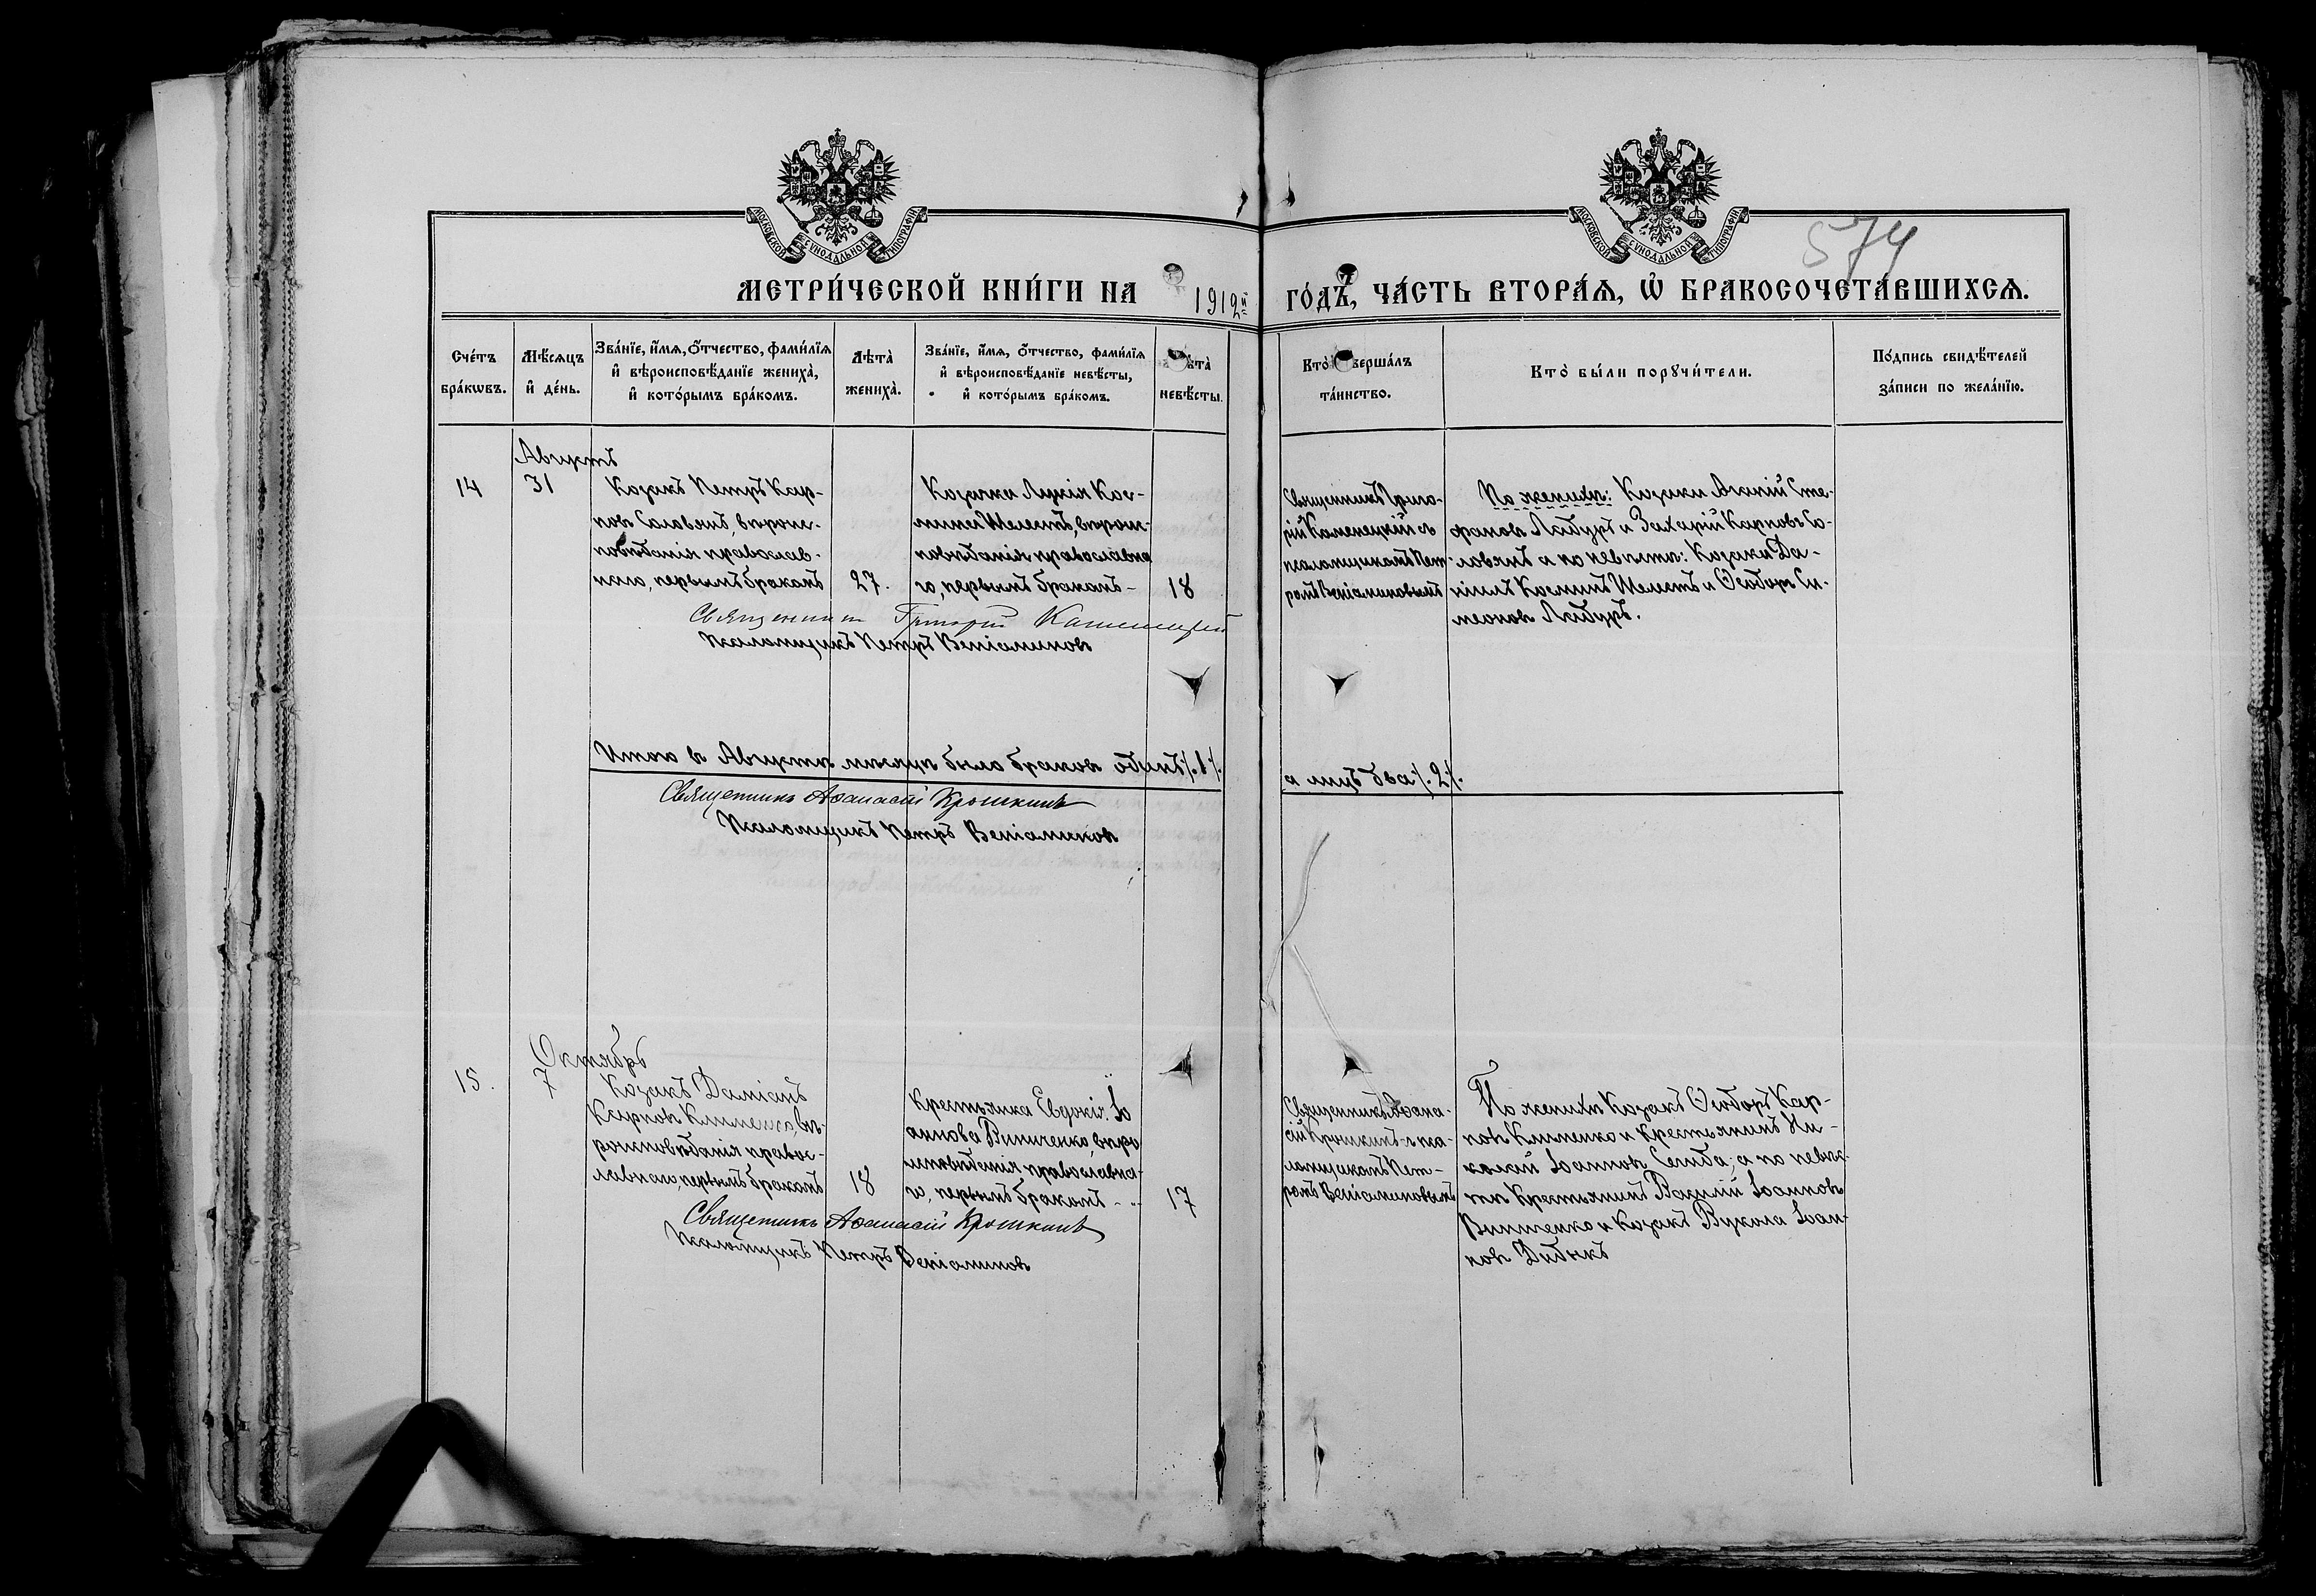 МОСКОВСКОЙ СУНОДАЛЬНОЙ ТИПОГРАФІИ
МОСКОВСКОЙ СУНОДАЛЬНОЙ ТИПОГРАФІИ
574
МЕТРИ́ЧЕСКОЙ КНИ́ГИ НА 1912й ГО́ДЪ, ЧА́СТЬ ВТОРА́Я, Ѡ БРАКОСОЧЕТА́ВШИХСЯ.
Сче́тъ бра́кωвъ.
Мѣ́сяцъ и де́нь.
Зва́нїе, и́мя, ѻ́тчество, фами́лїя и вѣроисповѣ́данїе жениха̀, и кото́рымъ бра́комъ.
Лѣта̀ жениха̀.
Зва́нїе, и́мя, ѻ́тчество, фами́лїя и вѣроисповѣ́данїе невѣ́сты, и кото́рымъ бра́комъ.
Лѣта̀ невѣ́сты.
Кто̀ соверша́лъ та́инство.
Кто̀ бы́ли порꙋчи́тели.
По́дпись свидѣ́телей за́писи по жела́нїю.
Августъ
14
31
Козакъ Петръ Кар-
повъ Саловяй, вѣроис-
повѣданія православ-
наго, первымъ бракомъ
27.
Козачка Лукія Кос-
мина Шелестъ, вѣроис-
повѣданія православна
го, первымъ бракомъ -
18
Священникъ Григо-
рій Каменецкій съ
псаломщикомъ Пет
ромъ Веніаминовымъ
По женихѣ: Козаки Сте-
фановъ Лабуръ и Захарій Карповъ Са-
а по невѣстѣ: Козаки Да-
ніилъ Косминъ Шелестъ и Ѳеодоръ Си-
меоновъ Лабуръ.
Священникъ Григорій Каменецкій
Псаломщикъ Петръ Веніаминовъ
Итого въ Августѣ мѣсяцѣ было браковъ одинъ /.1/. а лицъ два /.2/.
Священникъ Аѳанасій Крошкинъ
Псаломщикъ Петръ Веніаминовъ
Октябрь
15.
7
Козакъ Даміанъ
Карповъ Клименко, вѣ-
роисповѣданія правос-
лавнаго, первымъ бракомъ
18
Крестьянка Евдокія Іо
аннова Винниченко, вѣро
исповѣданія православна-
го, первымъ бракомъ - -
17
Священникъ Аѳана-
сій Крошкинъ съ пса-
ломщикомъ Пет-
ромъ Веніаминовымъ
По женихѣ Козакъ Ѳеодоръ Кар-
повъ Клименко и Крестьянинъ Ни-
колай Іоанновъ а по невѣс-
тѣ Крестьянинъ Василій Іоанновъ
Винниченко и Козакъ Вукола Іоан-
новъ
Священникъ Аѳанасій Крошкинъ
Псаломщикъ Петръ Веніаминовъ